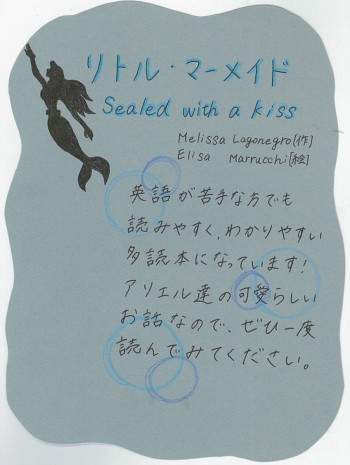 リトル・マーメイド
Sealed with a kiss
Melissa Lagonegro[作]
Elisa Marrucchi[絵]
英語が苦手な方でも
読みやすく、わかりやすい
多読本になっています!
アリエル達の可愛らしい
お話なので、ぜひ一度
読んでみてください。